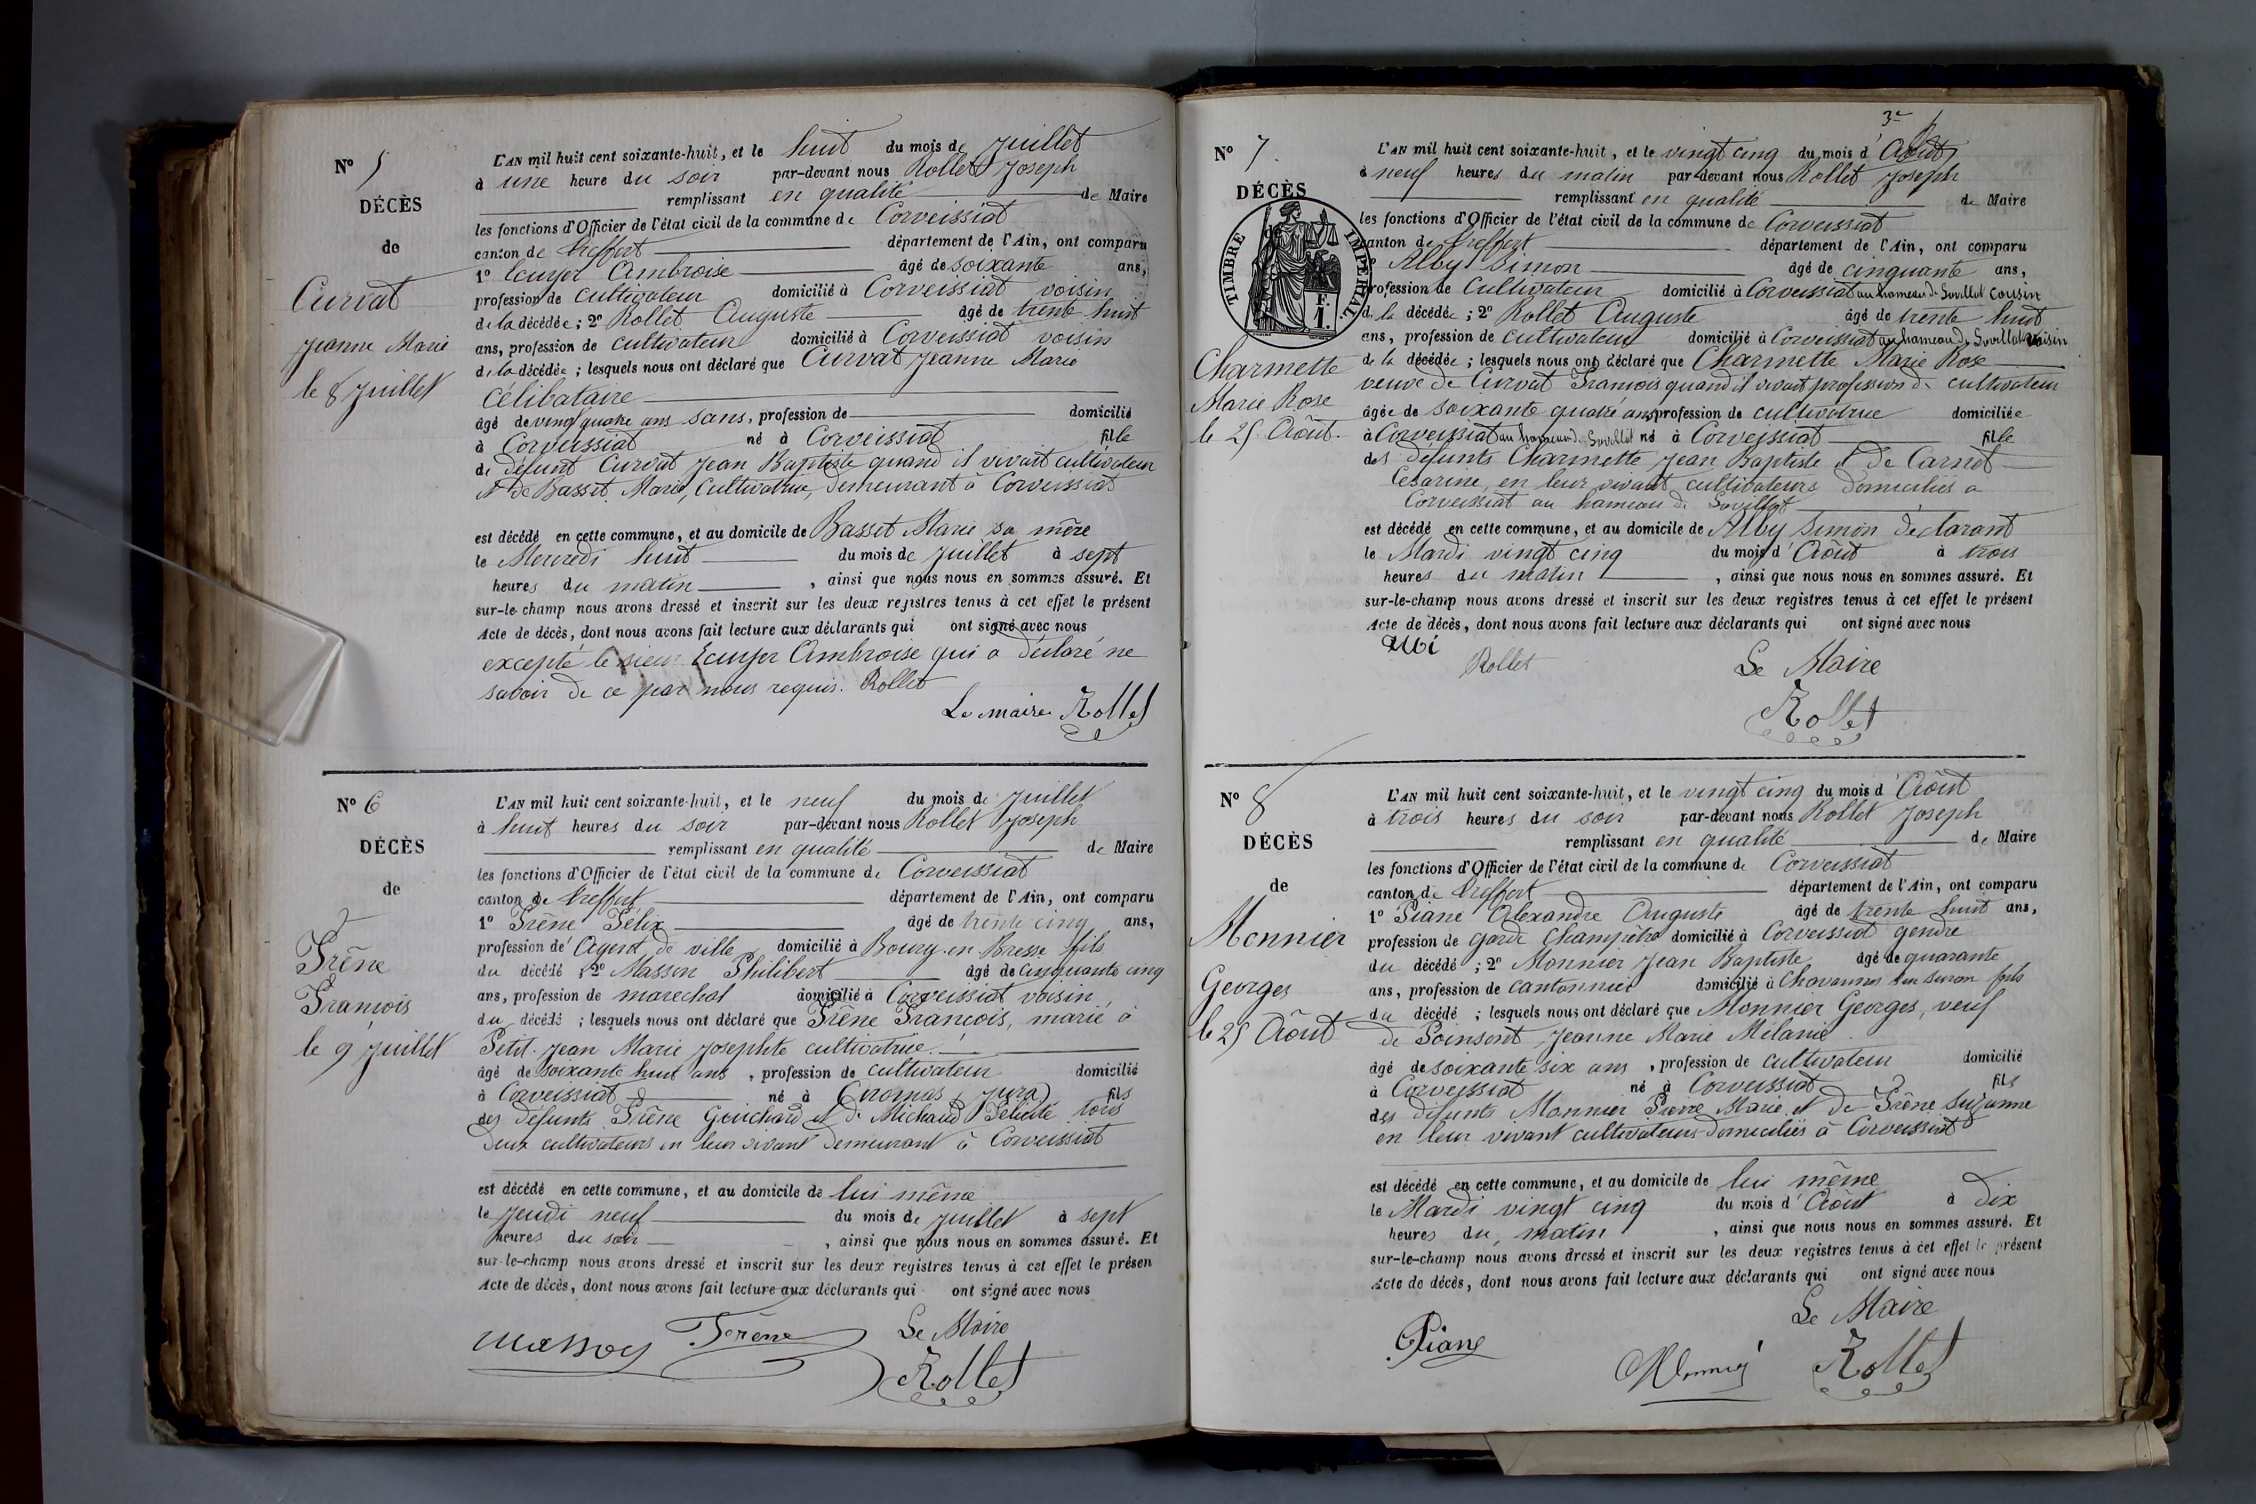 N° 5
DÉCÈS
de
Curvat
Jeanne Marie
le 8 Juillet
L'AN mil huit cent soixante-huit, et le huit du mois de Juillet
à une heure du soir par-devant nous Rollet Joseph
remplissant en qualité de Maire
les fonctions d'Officier de l'état civil de la commune de Corveissiat
canton de Treffort département de l'Ain, ont comparu
1° Ecuyer Ambroise âgé de soixante ans,
profession de cultivateur domicilié à Corveissiat voisin
de la décédée ; 2° Rollet Auguste âgé de trente huit
ans, profession de cultivateur domicilié à Corveissiat voisin
de la décédée ; lesquels nous ont déclaré que Curvat Jeanne Marie
Célibataire
âgé de vingt quatre ans sans, profession de domicilié
à Corveissiat né à Corveissiat fille
de défunt Curvat Jean Baptiste quand il vivait cultivateur
et de Basset Marie, Cultivatrice, demeurant à Corveissiat
est décédé en cette commune, et au domicile de Basset Marie sa mère
le Mercredi huit du mois de Juillet à sept
heures du matin , ainsi que nous nous en sommes assuré. Et
sur-le-champ nous avons dressé et inscrit sur les deux registres tenus à cet effet le présent
Acte de décès, dont nous avons fait lecture aux déclarants qui ont signé avec nous
excepté le sieur Ecuyer Ambroise qui a déclaré ne
savoir de ce par nous requis. Rollet
Le maire Rollet
N° 6
DÉCÈS
de
Frêne
François
le 9 Juillet
L'AN mil huit cent soixante-huit, et le neuf du mois de Juillet
à huit heures du soir par-devant nous Rollet Joseph
remplissant en qualité de Maire
les fonctions d'Officier de l'état civil de la commune de Corveissiat
canton de Treffort département de l'Ain, ont comparu
1° Frêne Félix âgé de trente cinq ans,
profession de Agent de ville domicilié à Bourg-en-Bresse fils
du décédé ; 2° Masson Philibert âgé de cinquante cinq
ans, profession de marechal domicilié à Corveissiat voisin
du décédé ; lesquels nous ont déclaré que Frêne François, marié à
Petit Jean Marie Josephte cultivatrice.
âgé de soixante huit ans , profession de cultivateur domicilié
à Corveissiat né à Cornod (Jura) fils
des défunts Frêne Guichard et de Michaud Felicité tous
deux cultivateurs en leur vivant demeurant à Corveissiat
est décédé en cette commune, et au domicile de lui même
le Jeudi neuf du mois de Juillet à sept
heures du soir , ainsi que nous nous en sommes assuré. Et
sur-le-champ nous avons dressé et inscrit sur les deux registres tenus à cet effet le présen
Acte de décès, dont nous avons fait lecture aux déclarants qui ont signé avec nous
Masson Frêne Le Maire
Rollet
3e
N° 7.
DÉCÈS
de
TIMBRE IMPÉRIAL
Charmette
Marie Rose
le 25 Août.
L'AN mil huit cent soixante-huit, et le vingt cinq du mois d'Août
à neuf heures du matin par-devant nous Rollet Joseph
remplissant en qualité de Maire
les fonctions d'Officier de l'état civil de la commune de Corveissiat
canton de Treffort département de l'Ain, ont comparu
Alby Simon âgé de cinquante ans,
profession de Cultivateur domicilié à Corveissiat au hameau de Sovillat cousin
de la décédée ; 2° Rollet Auguste âgé de trente huit
ans, profession de cultivateur domicilié à Corveissiat au hameau de Sovillat voisin
de la décédée ; lesquels nous ont déclaré que Charmette Marie Rose
veuve de Curvat François quand il vivait profession de cultivateur
âgée de soixante quatre ans, profession de cultivatrice domiciliée
à Corveissiat au hameau de Sovillat né à Corveissiat fille
des défunts Charmette Jean Baptiste et de Carnet
Césarine, en leur vivant cultivateurs domiciliés à
Corveissiat au hameau de Sovillat
est décédé en cette commune, et au domicile de Alby Simon déclarant
le Mardi vingt cinq du mois d'Août à trois
heures du matin , ainsi que nous nous en sommes assuré. Et
sur-le-champ nous avons dressé et inscrit sur les deux registres tenus à cet effet le présent
Acte de décès, dont nous avons fait lecture aux déclarants qui ont signé avec nous
Albi
Rollet Le Maire
Rollet
N° 8
DÉCÈS
de
Monnier
Georges
le 25 Août
L'AN mil huit cent soixante-huit, et le vingt cinq du mois d'Août
à trois heures du soir par-devant nous Rollet Joseph
remplissant en qualité de Maire
les fonctions d'Officier de l'état civil de la commune de Corveissiat
canton de Treffort département de l'Ain, ont comparu
1° Piane Alexandre Auguste âgé de trente huit ans,
profession de garde champêtre domicilié à Corveissiat gendre
du décédé ; 2° Monnier Jean Baptiste âgé de quarante
ans, profession de cantonnier domicilié à Chavannes sur suran fils
du décédé ; lesquels nous ont déclaré que Monnier Georges, veuf
de Poinsont Jeanne Marie Mélanie
âgé de soixante six ans , profession de cultivateur domicilié
à Corveissiat né à Corveissiat fils
des défunts Monnier Pierre Marie et de Frêne Suzanne
en leur vivant cultivateurs domiciliés à Corveissiat
est décédé en cette commune, et au domicile de lui même
le Mardi vingt cinq du mois d'Août à dix
heures du matin , ainsi que nous nous en sommes assuré. Et
sur-le-champ nous avons dressé et inscrit sur les deux registres tenus à cet effet le présent
Acte de décès, dont nous avons fait lecture aux déclarants qui ont signé avec nous
Le Maire
Piane Monnier Rollet